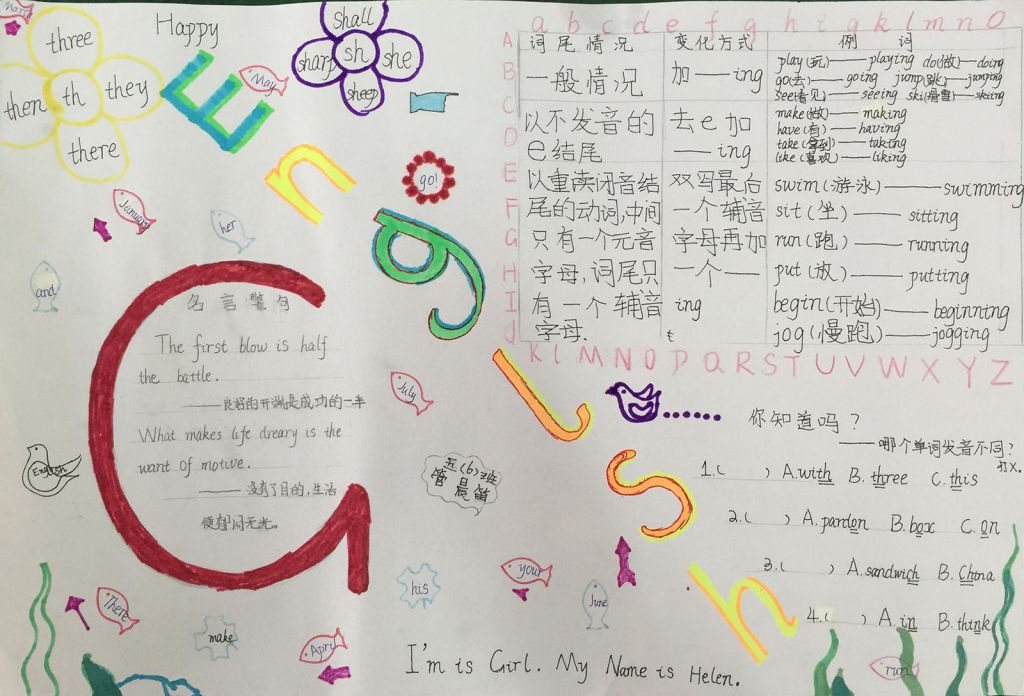 March
three
then th they
there
Happy
shall
sharp sh she
sheep
English
May
go!
January
her
and
July
a b c d e f g h i g k l m n O
A
B
C
D
E
F
G
H
I
J
词尾情况 变化方式 例 词
一般情况 加——ing
play(玩)——playing do(做)——doing
go(去)——going jump(跳)——jumping
see(看见)——seeing ski(滑雪)——skiing
以不发音的
e结尾
去e加
——ing
make(做)——making
have(有)——having
take(拿到)——taking
like(喜欢)——liking
以重读闭音结
尾的动词,中间
只有一个元音
字母,词尾只
有一个辅音
字母.
双写最后
一个辅音
字母再加
一个——
ing
t
swim(游泳)——swimming
sit(坐)——sitting
run(跑)——running
put(放)——putting
begin(开始)——beginning
jog(慢跑)——jogging
K L M N O P Q R S T U V W X Y Z
G
名言警句
The first blow is half
the battle.
——良好的开端是成功的一半
What makes life dreary is the
want of motive.
——没有了目的,生活
便郁闷无光。
English
五(6)班
管晨笛
你知道吗?
——哪个单词发音不同?
打X.
1.( ) A.with B. three C. this
2.( ) A.pardon B.box C. on
3.( ) A.sandwich B. China
4.( ) A.in B.think
There
make
April
his
your
June
run
I'm is Girl. My Name is Helen.